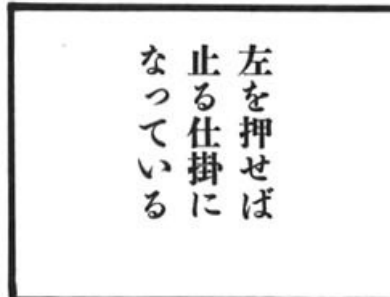 左を押せば
止る仕掛に
なっている